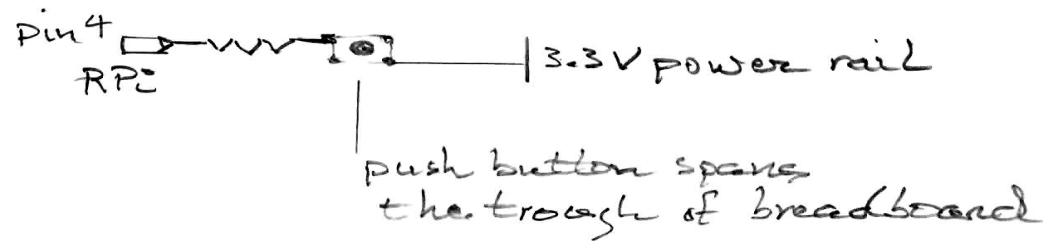 pin 4
RPi
3.3V power rail
push button spans
the trough of breadboard